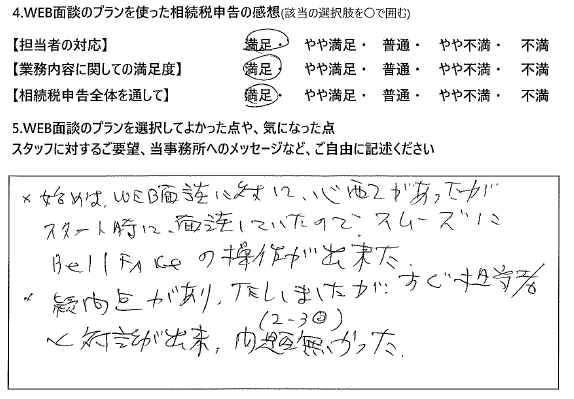 4.WEB面談のプランを使った相続税申告の感想(該当の選択肢を○で囲む)
【担当者の対応】 満足・ やや満足・ 普通・ やや不満・ 不満
【業務内容に関しての満足度】 満足・ やや満足・ 普通・ やや不満・ 不満
【相続税申告全体を通して】 満足・ やや満足・ 普通・ やや不満・ 不満
5.WEB面談のプランを選択してよかった点や、気になった点
スタッフに対するご要望、当事務所へのメッセージなど、ご自由に記述ください
× 始めは、WEB面談に対し、心配があったが
スタート時に、面談していたので、スムーズに
Bell FAceの操作が出来た。
× 疑問点があり、TELしましたが、すぐ担当者
(2-3回)
と対話が出来、問題無かった。